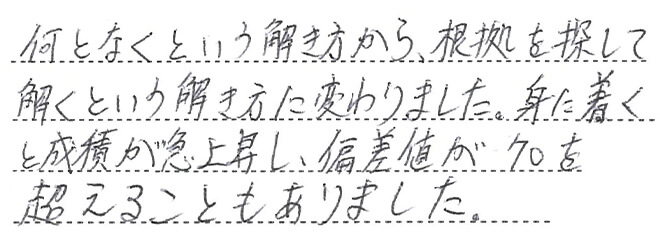 何となくという解き方から、根拠を探して
解くという解き方に変わりました。身に着く
と成績が急上昇し、偏差値が70を
超えることもありました。